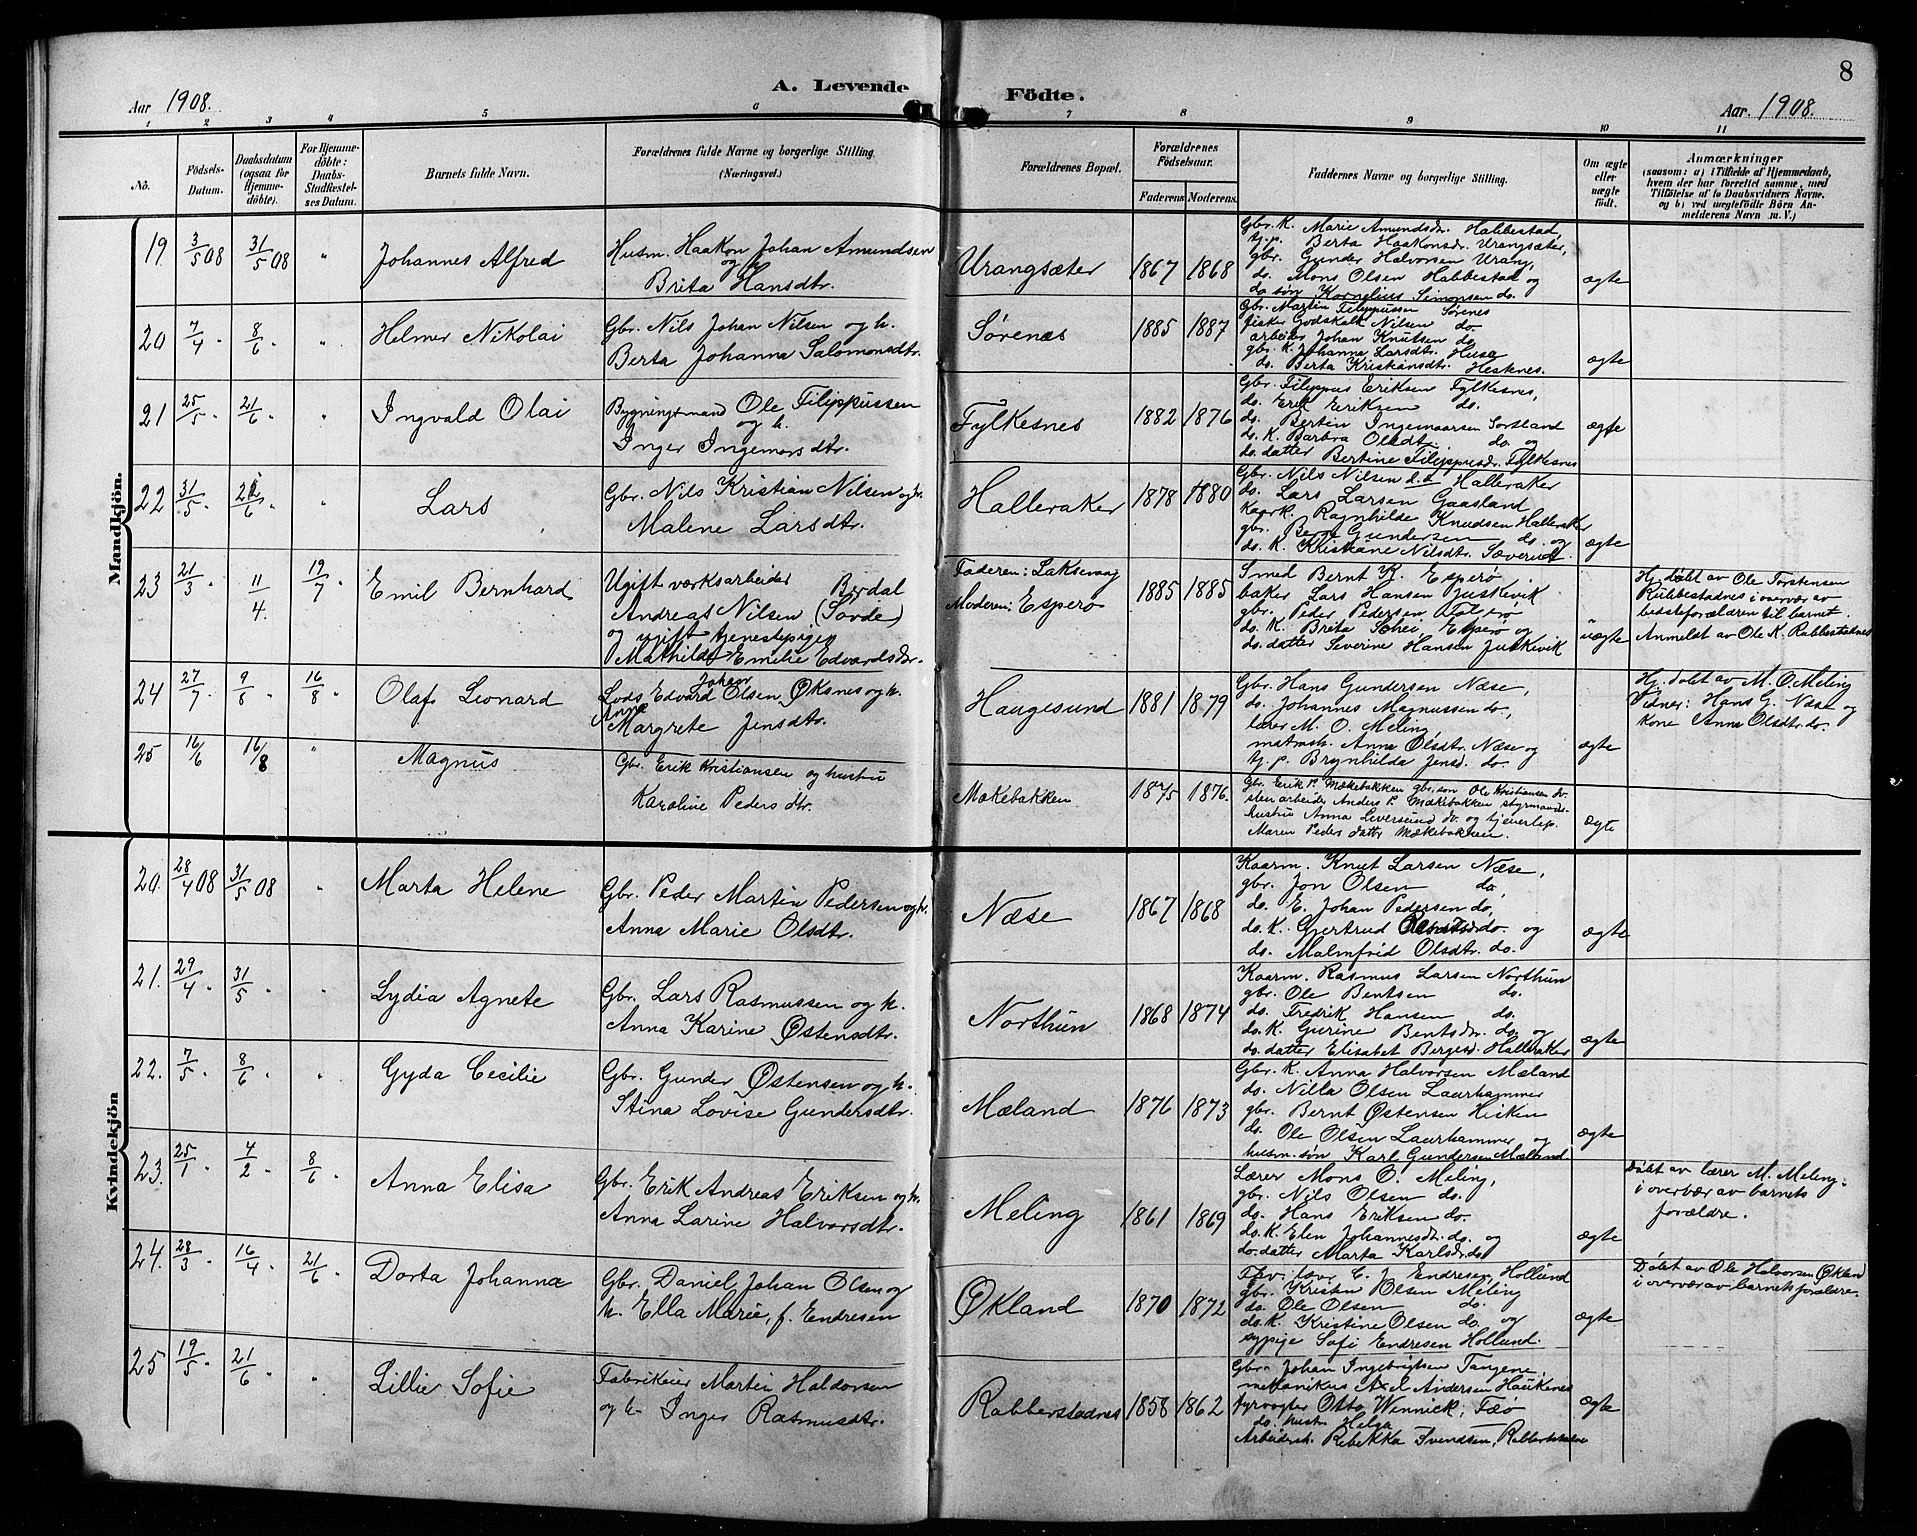 8
A. Levende Födte.
Aar 1908.
Aar. 1908.
1 2 3 4 5 6 7 8 9 10 11
No.
Födsels-Datum.
Daabsdatum (ogsaa for Hjemme-döbte).
For Hjemme-döbte: Daabs-Stadfæstel-ses Datum.
Barnets fulde Navn.
Forældrenes fulde Navne og borgerlige Stilling. (Næringsvei.)
Forældrenes Bopæl.
Forældrenes Födselsaar.
Faderens Moderens.
Faddernes Navne og borgerlige Stilling.
Om ægte eller uægte födt.
Anmærkninger
(saasom: a) i Tilfælde af Hjemmedaab,
hvem der har forrettet samme, med
Tilföielse af to Daabsvidners Navne.
og b) ved uægtefödte Börn An-
melderens Navn m. V.)
Mandkjön.
19. 3/5 08 31/5 08 "
Johannes Alfred
Husm. Haakon Johan Amundsen
og h.
Brita Hansdtr.
Urangsæter
1867 1868
Gbr. K. Marie Amundsdr. Habbestad,
tj.p. Berta Haakonsdr. Urangsæter,
gbr. Gunder Halvorsen Urang,
do. Mons Olsen Habbestad og
do søn Kornelius Simonsen do.
ægte
20 7/4 . 8/6 . "
Helmer Nikolai
Gbr. Nils Johan Nilsen og h.
Berta Johanna Salomonsdtr.
Sørenæs
1885 1887
Gbr. Martin Filippussen Sørenes
fisker Godskalk Nilsen do
arbeider Johan Knutsen do
gbr. K. Johanna Larsdtr. Husa
do. Berta Kristiansdtr. Hesknes.
ægte
21 25/5 . 21/6 . "
Ingvald Olai
Bygningsmand Ole Filippussen
og h.
Inger Ingemarsdtr.
Fylkesnes
1882 1876
Gbr. Filippus Eriksen Fylkesnes,
do. Erik Eriksen do.
do. Bertin Ingemaarsen Sortland
do. K. Barbra Olsdtr. do. og
do. datter Bertine Filippusdr. Fylkesnes
ægte
22 31/5 . 21/6 . "
Lars
Gbr. Nils Kristian Nilsen og h.
Malene Larsdtr.
Halleraker
1878 1880
Gbr. Nils Nilsen d.æ Halleraker
do. Lars Larsen Gaasland
kaark. Ragnhilde Knudsen Halleraker
gbr. Gundersen do. og
do. K. Kristiane Nilsdtr. Sæverud
ægte
23 21/3 . 11/4. 19/7 .
Emil Bernhard
Ugift værksarbeider Berdal
Andreas Nilsen (Sövde)
og ugift tjenestepigen
Mathilde Emilie Edvardsdr.
Faderen: Laksevaag
Moderen: Esperø
1885 1885
Smed Bernt K. Esperø
baker Lars Hansen Juskevik
gbr. Peder Pedersen Folgerø
do. K. Brita Schei Esperø og
do. datter Severine Hansen Juskevik
uægte
Hj. døbt av Ole Torstensen
Rubbestadnes i overvær av
bedsteforældren til barnet.
Anmeldt av Ole K. Rubbestadnes
24 27/7 . 9/8 . 16/8 .
Olaf Leonard
Johan
Lods Edvard Olsen Øksnes og h.
Anna
Margrete Jensdtr.
Haugesund
1881 1879
Gbr. Hans Gundersen Næse,
do. Johannes Magnussen do.,
lærer M. O. Meling,
matrosk. Anna Olsdtr. Næse og
tj. p. Brynhilda Jensd. do.
ægte
Hj. døbt av M. O. Meling
Vidner: Hans G. Næse og
kone Anna Olsdtr. do.
25 16/6 16/8 "
Magnus
Gbr. Erik Kristiansen og hustru
Karoline Pedersdtr.
Mækebakken
1875 1876.
Gbr. Erik P. Mækebakken gbr. søn Ole Kristiansen do.
stenarbeider Anders P. Mækebakken styrmands-
hustru Anna Leversund do. og tjenerlep.
Maren Peder datter Mækebakken.
ægte
Kvindekjön
20. 28/4 08 31/5 08 "
Marta Helene
Gbr. Peder Martin Pedersen og h.
Anna Marie Olsdtr.
Næse
1867 1868
Kaarm. Knut Larsen Næse,
gbr. Jon Olsen do,
do. E. Johan Pedersen do,
do. K. Gjertrud do. og
do. Malmfrid Olsdtr. do.
ægte
21. 29/4 . 31/5 . "
Lydia Agnete
Gbr. Lars Rasmussen og h.
Anna Karine Østensdtr.
Northun
1868 1874
Kaarm. Rasmus Larsen Northun
gbr. Ole Bentsen do.
do. Fredrik Hansen do.
do. K. Gurine Bentsdr. do. og
do. datter Elisabet Bergesd. Halleraker
ægte
22. 7/5 . 8/6 . "
Gyda Cecilie
Gbr. Gunder Østensen og h.
Stina Lovise Gundersdtr.
Mæland
1876 1873
Gbr. K. Anna Halvorsen Mæland
do. Nilla Olsen Laurhammer
gbr. Bernt Østensen Hisken
do. Ole Olsen Laurhammer og
husm. søn Karl Gundersen Mæland
ægte
23. 25/1 . 4/2 . 8/6 .
Anna Elisa
Gbr. Erik Andreas Eriksen og h.
Anna Larine Halvorsdtr.
Meling
1861 1869
Lærer Mons O. Meling,
gbr. Nils Olsen do.
do. Hans Eriksen do.
do. K. Elen Johannesdtr. do. og
do. datter Marta Karlsdr. do
ægte
Døbt av lærer M. Meling
i overvær av barnets
forældre.
24. 28/3 . 16/4 . 21/6 .
Dorta Johanna
Gbr. Daniel Johan Olsen og
h. Ella Marie, f. Endresen
Økland
1870 1872
Fhv. lærer C. J. Endresen, Hollund
gbr. Kristen Olsen Meling
do. Ole Olsen do.
do. K. Kristine Olsen do. og
sypige Sofi Endresen Hollund.
ægte
Døbt av Ole Halvorsen Økland
i overvær av barnets forældre.
25 19/5 . 21/6 . "
Lillie Sofie
Fabrikeier Martin Haldorsen
og h. Inger Rasmusdtr.
Rabberstadnes
1858 1862
Gbr. Johan Ingebrigtsen Tangene
mekanikus Axel Andersen Haukenes
fyrvogter Otto Winnick, Fæø
do. hustr. Helga
Arbeidersk. Rebekka Svendsen, Rabberstadnes
ægte